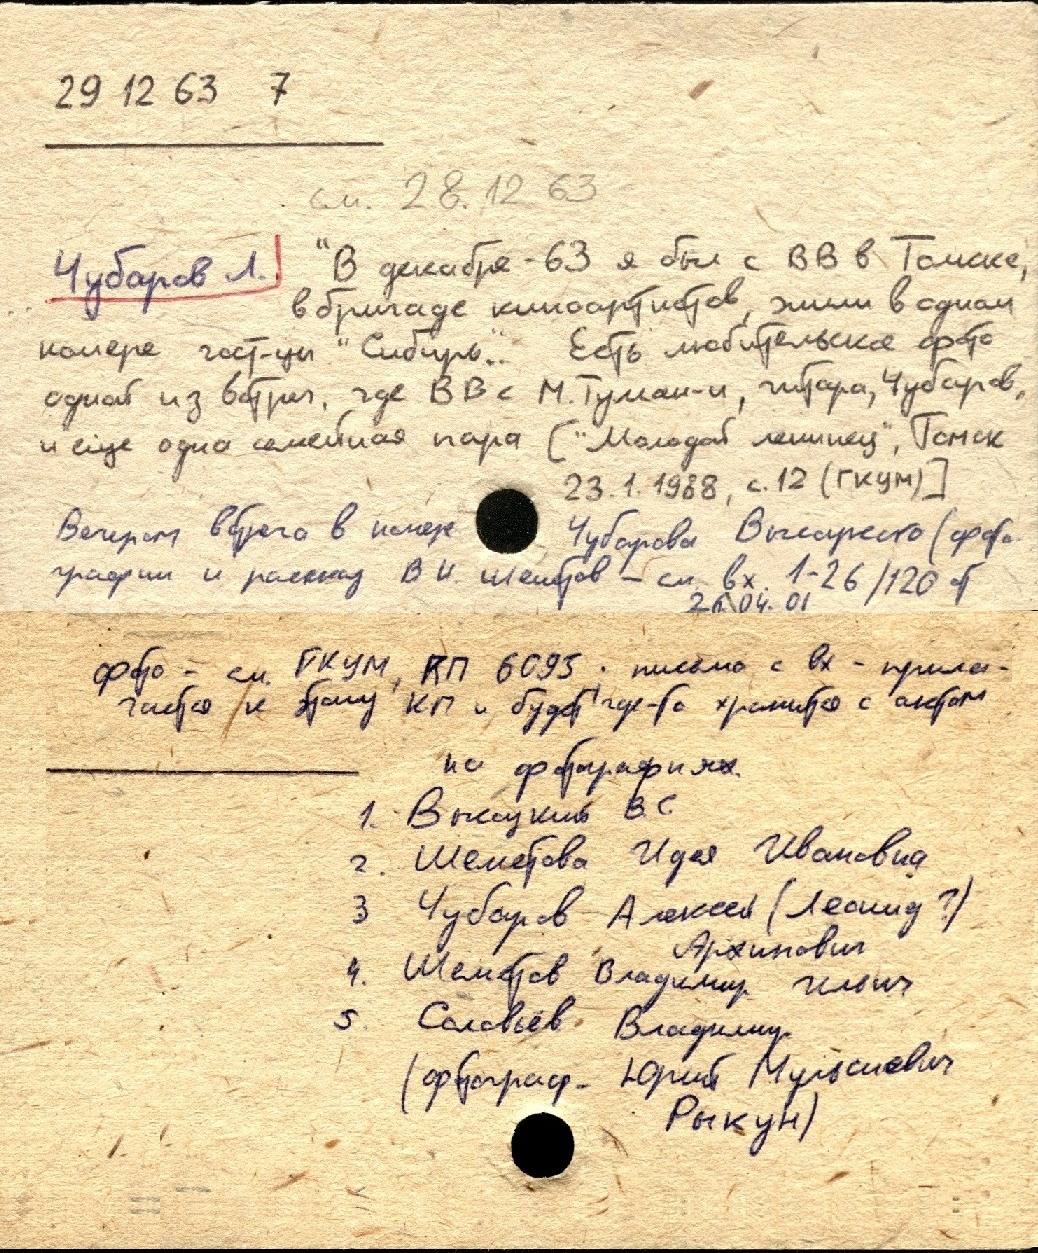 29 12 63 7
см. 28.12 63
Чубаров Л. "В декабре-63 я был с ВВ в Томске,
в бригаде киноартистов, жили в одном
номере гост-цы "Сибирь".. Есть любительское фото
одной из встреч, где ВВ с М.Туман-и, гитара, Чубаров,
и еще одна семейная пара ["Молодой ленинец", Томск
23.1.1988, с.12 (ГКЦМ)]
Вечером встреча в номере Чубарова Высоцкого (фото-
графии и рассказ В И. Шеметов - см. вх. 1-26/120 от
26.04.01
фото - см. ГКЦМ, КП 6095. письмо с вх - прила-
гается к этому КП и будет где-то хранится с актом
на фотографиях
1. Высоцкий ВС
2. Шеметова Идея Ивановна
3 Чубаров Алексей (Леонид ?)
Архипович
4. Шеметов Владимир Ильич
5. Соловьев Владимир
(фотограф - Юрий
Рыкун)